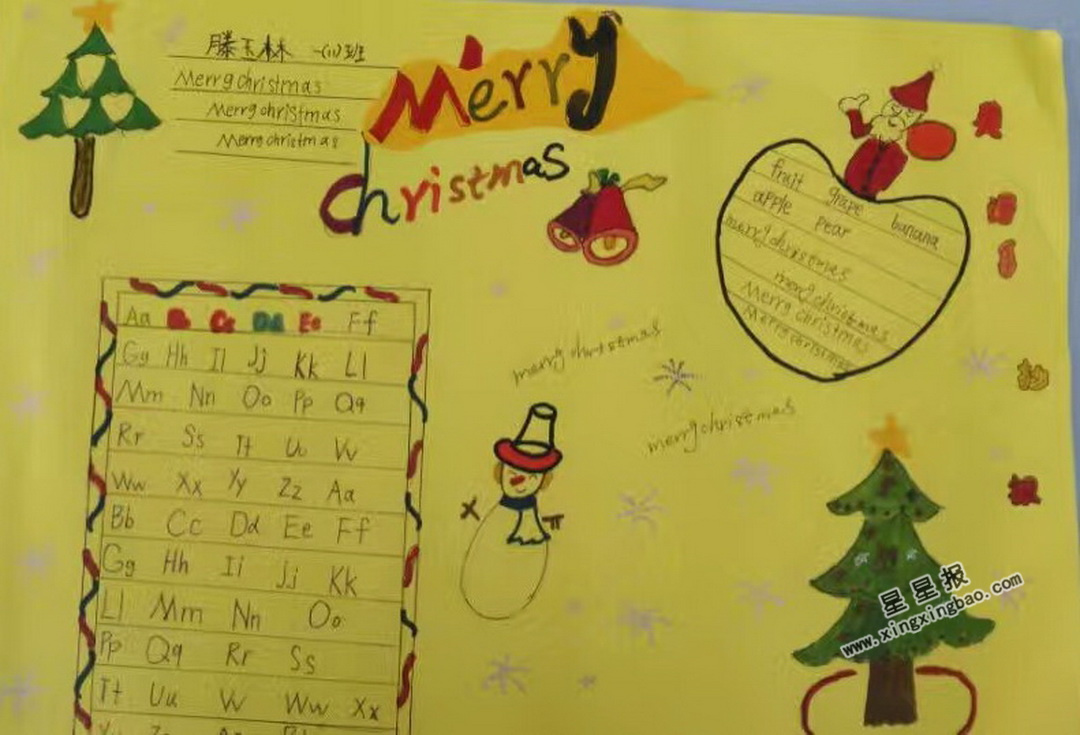 滕玉林 一(11)班
Merry christmas
Merry christmas
Merry christmas
Merry
christmas
fruit grape banana
apple pear
merry christmas
merry christmas
Merry christmas
Merry christmas
手
抄
报
Aa Bb Cc Dd Ee Ff
Gg Hh Il Jj Kk Ll
Mm Nn Oo Pp Qq
Rr Ss Tt Uu Vv
Ww Xx Yy Zz Aa
Bb Cc Dd Ee Ff
Gg Hh Ii Jj Kk
Ll Mm Nn Oo
Pp Qq Rr Ss
Tt Uu Vv Ww Xx
merry christmas
merry christmas
星星报
www.xingxingbao.com